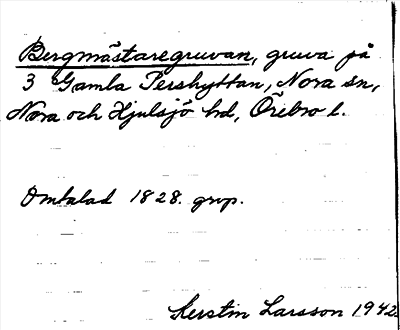 Bergmästaregruvan, gruva på
3 Gamla Pershyttan, Nora sn,
Nora och Hjulsjö hd, Örebro l.
Omtalad 1828. grvp.
Kerstin Larsson 1942